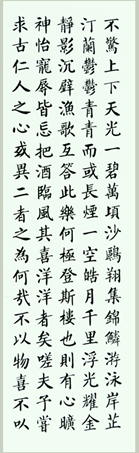 不驚上下天光一碧萬頃沙鷗翔集錦鱗游泳岸芷
汀蘭鬱鬱青青而或長煙一空皓月千里浮光耀金
靜影沉璧漁歌互答此樂何極登斯樓也則有心曠
神怡寵辱皆忘把酒臨風其喜洋洋者矣嗟夫予嘗
求古仁人之心或異二者之為何哉不以物喜不以